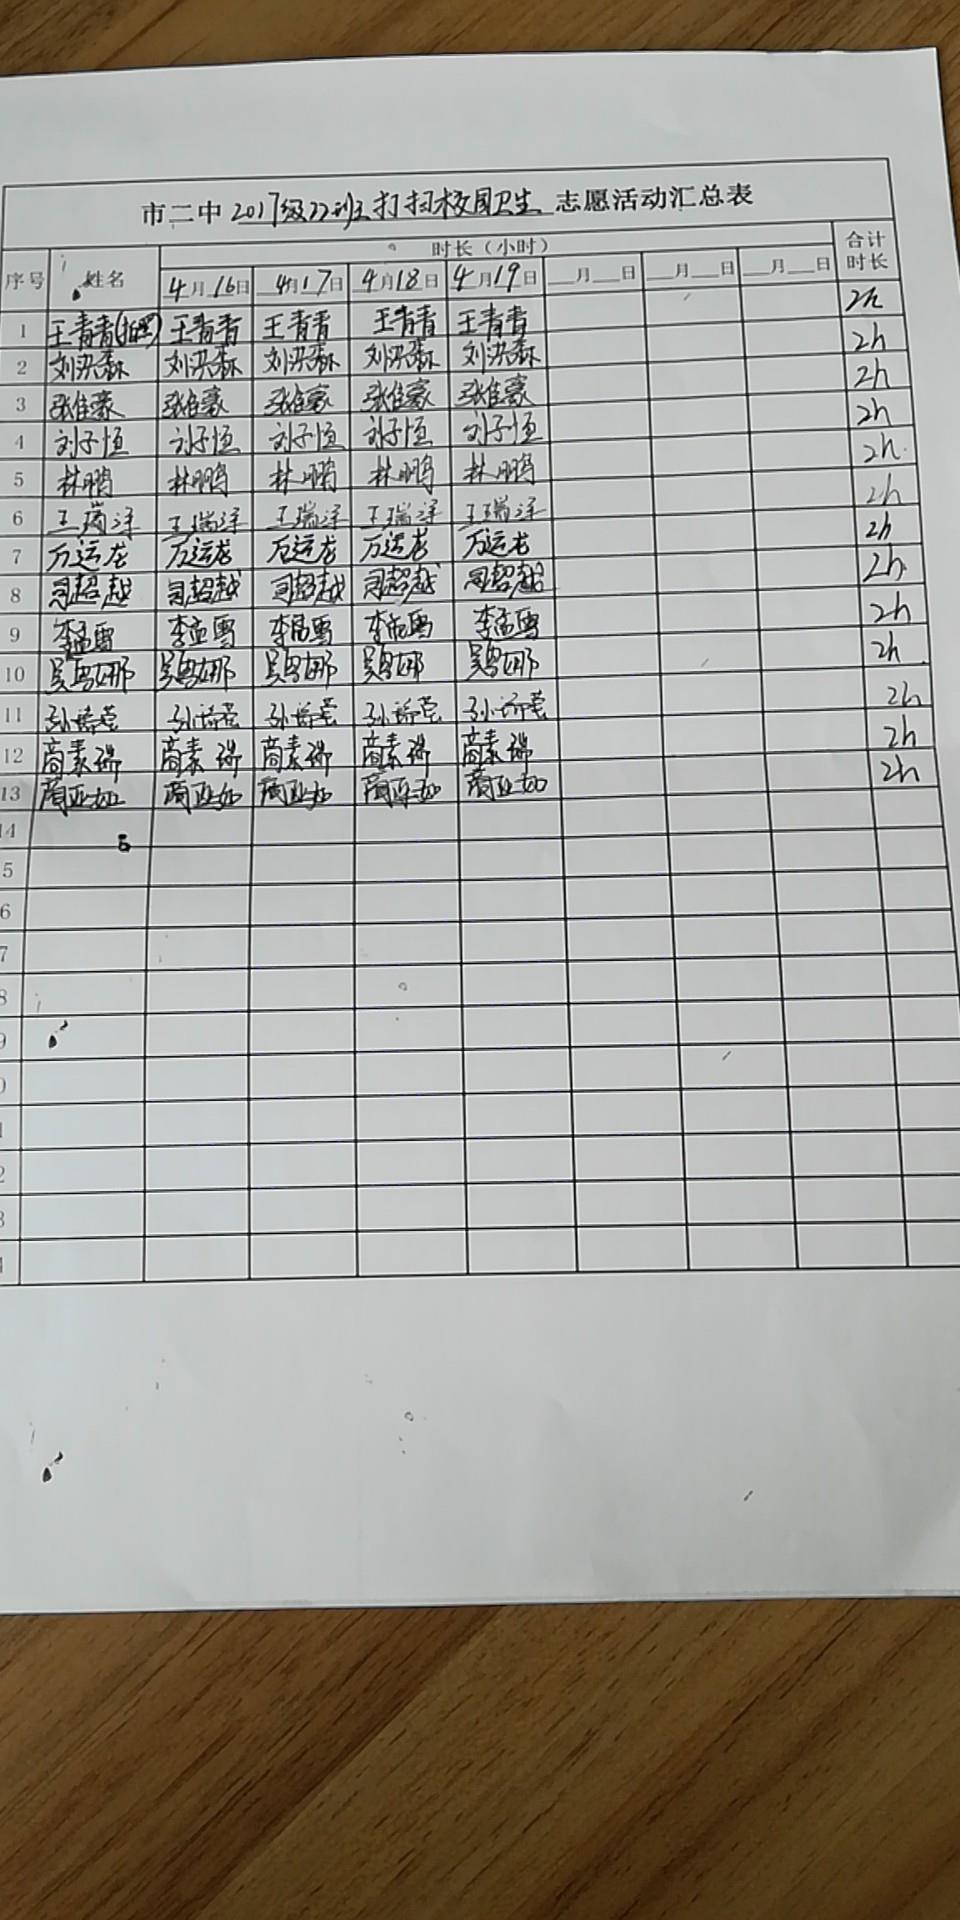 市二中2017级22班打扫校园卫生志愿活动汇总表
序号 姓名 时长（小时） 合计时长
4月16日 4月17日 4月18日 4月19日 __月__日 __月__日 __月__日
1 王青青(拍照) 王青青 王青青 王青青 王青青 2h
2 刘洪森 刘洪森 刘洪森 刘洪森 刘洪森 2h
3 张佳豪 张佳豪 张佳豪 张佳豪 张佳豪 2h
4 刘子恒 刘子恒 刘子恒 刘子恒 刘子恒 2h
5 林鹏 林鹏 林鹏 林鹏 林鹏 2h
6 王瑞洋 王瑞洋 王瑞洋 王瑞洋 王瑞洋 2h
7 万运龙 万运龙 万运龙 万运龙 万运龙 2h
8 司超越 司超越 司超越 司超越 司超越 2h
9 李孟雪 李孟雪 李孟雪 李孟雪 李孟雪 2h
10 吴娜 吴娜 吴娜 吴娜 吴娜 2h
11 孙莹 孙莹 孙莹 孙莹 孙莹 2h
12 商素瑞 商素瑞 商素瑞 商素瑞 商素瑞 2h
13 商亚如 商亚如 商亚如 商亚如 商亚如 2h
14
5
6
7
8
9
0
1
2
3
4